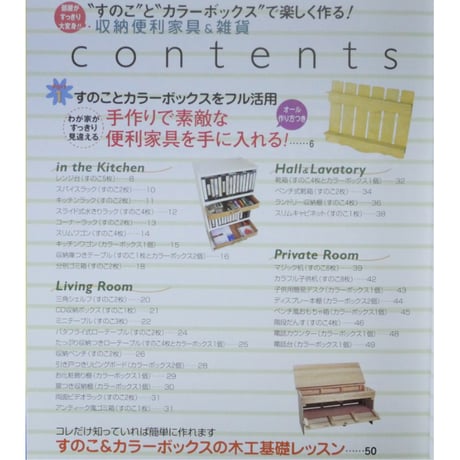 部屋が
すっきり
大変身!!
"すのこ"と"カラーボックス"で楽しく作る!
収納便利家具&雑貨
contents
1
すのことカラーボックスをフル活用
わが家が
すっきり
見違える
手作りで素敵な
便利家具を手に入れる!……6
オール
作り方つき
in the Kitchen
レンジ台(すのこ5枚)……8
スパイスラック(すのこ2枚)……10
キッチンラック(すのこ2枚)……11
スライド式水きりラック(すのこ4枚)……12
コーナーラック(すのこ3枚)……13
スリムワゴン(すのこ4枚)……14
キッチンワゴン(カラーボックス1個)……15
収納庫つきテーブル(すのこ1枚とカラーボックス2個)……16
分別ゴミ箱(すのこ2枚)……18
Living Room
三角シェルフ(すのこ2枚)……20
CD収納ボックス(すのこ1枚)……21
ミニテーブル(すのこ2枚)……22
バタフライ式ローテーブル(すのこ2枚)……24
たっぷり収納つきローテーブル(すのこ4枚とカラーボックス1個)……25
収納ベンチ(すのこ7枚)……26
引き戸つきリビングボード(カラーボックス2個)……28
お化粧飾り棚(カラーボックス1個)……29
扉つき収納棚(カラーボックス1個)……30
両面ビデオラック(すのこ3枚)……31
アンティーク風ゴミ箱(すのこ1枚)……31
Hall&Lavatory
靴箱(すのこ4枚とカラーボックス1個)……32
ベンチ式靴箱(すのこ2枚)……34
ランドリー収納棚(すのこ4枚)……36
スリムキャビネット(すのこ4枚)……38
Private Room
マジック机(すのこ8枚)……39
カラフル子供机(すのこ8枚)……42
子供用簡易デスク(カラーボックス1個)……43
ディスプレー本棚(カラーボックス2個)……44
ベンチ風おもちゃ箱(カラーボックス1個)……45
階段だんす(すのこ4枚)……46
電話カウンター(カラーボックス1個)……48
電話台(カラーボックス1個)……49
コレだけ知っていれば簡単に作れます
すのこ&カラーボックスの木工基礎レッスン……50